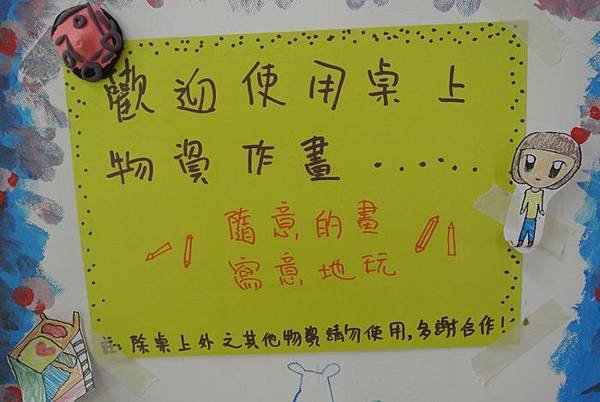 歡迎使用桌上
物資作畫......
隨意的畫
寫意地玩
註:除桌上外之其他物資請勿使用,多謝合作!